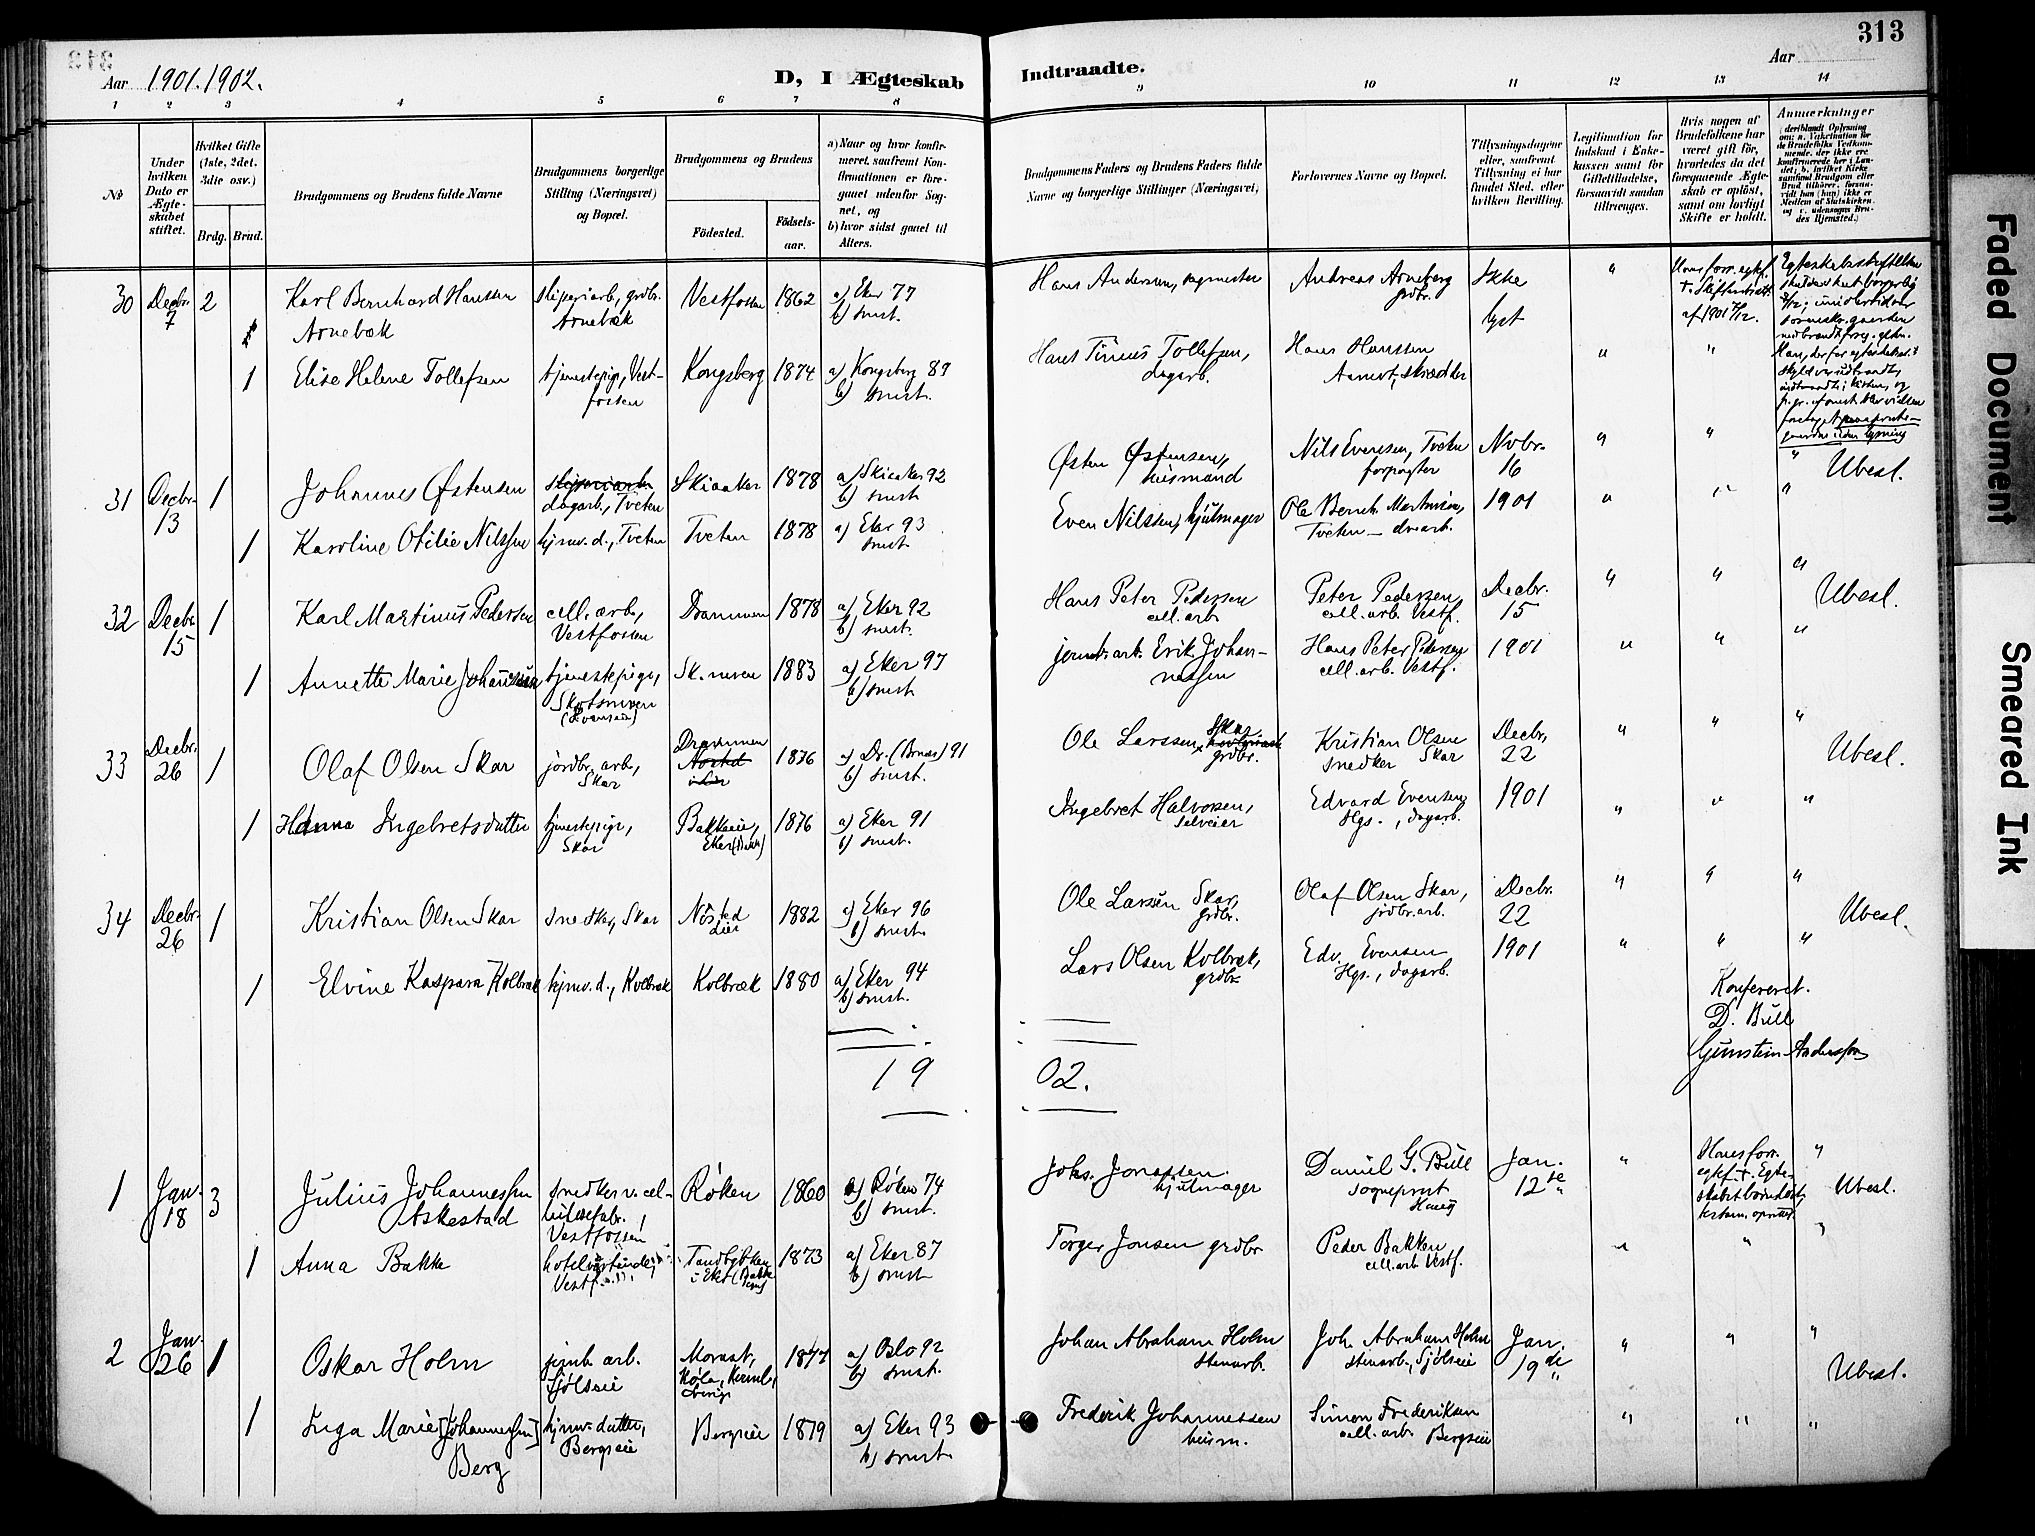 313
Aar 1901. 1902.
D, I Ægteskab Indtraadte.
Aar
1 2 3 4 5 6 7 8 9 10 11 12 13 14
No
Under hvilken Dato er Ægteskabet stiftet.
Hvilket Gifte (1ste, 2det, 3die osv.)
Brdg. Brud.
Brudgommens og Brudens fulde Navne
Brudgommens borgerlige Stilling (Næringsvei) og Bopæl.
Brudgommens og Brudens
Födested. Födselsaar.
a) Naar og hvor konfirmeret, saafremt Konfirmationen er foregaaet udenfor Sognet, og
b) hvor sidst gaaet til Alters.
Brudgommens Faders og Brudens Faders fulde Navne og borgerlige Stillinger (Næringsvei),
Forlovernes Navne og Bopæl.
Tillysningsdagene eller, saafremt Tillysning ei har fundet Sted, efter hvilken Bevilling.
Legitimation for Indskud i Enkekassen samt for Giftetilladelse, forsaavidt saadan tiltrænges.
Hvis nogen af Brudefolkene har været gift før, hvorledes da det foregaaende Ægteskab er opløst, samt om lovligt Skifte er holdt.
Anmærkninger
30 Decbr. 7 2 Karl Bernhard Hanssen Arnebæk sliperiarb., grdbr. Arnebæk Vestfossen 1862 a) Eker 77 b) smst. Hans Andersen, sagmester Andreas Arneberg grdbr. Ikke lyst "
1 Elise Helene Tollefsen tjenestepige, Vestfossen Kongsberg 1874 a) Kongsberg 89 b) smst. Hans Tinius Tollefsen, dagarb. Hans Hanssen skrædder " "
31 Decbr. 13 1 Johannes Østensen sliperiarb. dagarb., Tveten Skiaaker 1878 a) Skiaaker 92 b) smst. Østen Østensen, husmand Nils Evensen, Tveten forpagter Novbr. 16 " " " Ubesl.
1 Karoline Otilie Nilssen hjmv. d., Tveten Tveten 1878 a) Eker 93 smst. Even Nilssen, hjulmager Ole Bernh. Martinsen, Tveten 1901 " " "
32 Decbr. 15 1 Karl Martinus Pedersen cell. arb., Vestfossen Drammen 1878 a) Eker 92 b) smst. Hans Peter Pedersen cell. arb. Peter Pedersen, cell. arb. Vestf. Decbr. 15 " " " Ubesl.
1 Annette Marie Johannessen tjenestepige, Sk. 1883 a) Eker 97 b) smst. jernb. arb. Erik Johannessen Hans Peter Pedersen cell. arb. Vestf. 1901 " " "
33 Decbr. 26 1 Olaf Olsen Skar jordbr. arb., Skar Drammen 1876 a) Dr. (Brnæs) 91 b) smst. Ole Larssen, Skar grdbr. Kristian Olsen snedker Skar Decbr. 22 " " " Ubesl.
1 Hanna Ingebretsdatter tjenestepige, Skar Bakkeeie, Eker 1876 a) Eker 91 b) smst. Ingebret Halvorsen, selveier Edvard Evensen Hgs., dagarb. 1901 " " "
34 Decbr. 26 1 Kristian Olsen Skar snedker, Skar Nøsted Lier 1882 a) Eker 96 b) smst. Ole Larsen Skar, grdbr. Olaf Olsen Skar, jrdbr. arb. Decbr. 22 " " " Ubesl.
1 Elvine Kaspara Kolbræk hjmv. d., Kolbræk Kolbræk 1880 a) Eker 94 b) smst. Lars Olsen Kolbræk, grdbr. Edv. Evensen Hgs., dagarb. 1901 " " "
Konfereret.
D. Bull
Gunstein Anderssen
1902.
1 Jan. 18 3 Julius Johannessen Askestad snedker v. cellulosefabr., Vestfossen Røken 1860 a) Røken 74 b) smst. Johs. Jonassen hjulmager Daniel G. Bull sogneprest Haug Jan. 12te " " Ubesl.
1 Anna Bakke Vestf. i Eker 1873 a) Eker 87 b) smst. Torger Jonsen grdbr. Peder Bakken cell. arb. Vestf. " " "
2 Jan. 26 1 Oskar Holm jernb. arb. Sjølseie Morast, Køla, 1877 a) Oslo 92 b) smst. Johan Abraham Holm stenarb. Joh. Abraham Holm stenarb., Sjølseie Jan. 19de " " " Ubesl.
1 Inga Marie [Johannessen] Berg hjmv. datter, Bergseie Bergseie 1879 a) Eker 93 b) smst. Frederik Johannessen husm. Simon Frederiksen cell. arb. Bergseie " " "
Faded Document
Smeared Ink